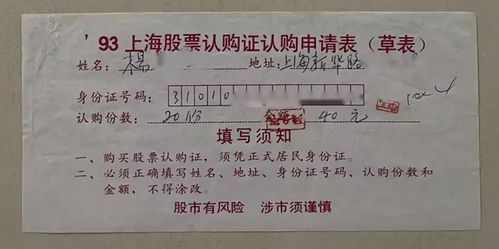 '93 上海股票认购证认购申请表（草表）
姓名： 地址：上海新华路
身份证号码：31010
认购份数：20份 金额 40元
填写须知
一、购买股票认购证，须凭正式居民身份证。
二、必须正确填写姓名、地址、身份证号码、认购份数和
金额，不得涂改。
股市有风险 涉市须谨慎